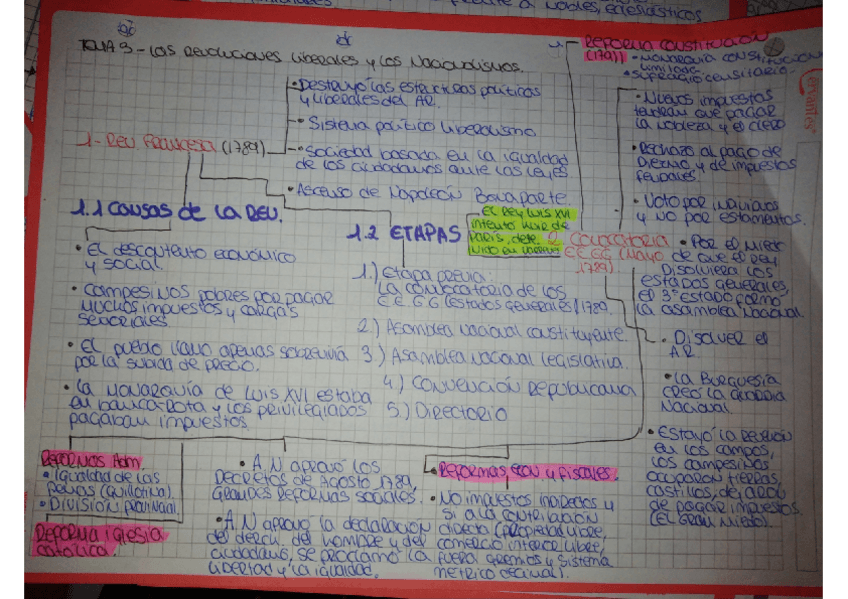 nobles, eclesiásticos
TEMA 3 - Las Revoluciones Liberales y los Nacionalismos.
1- Rev Francesa (1789)
• Destruyó las estructuras políticas
y liberales del AR.
• Sistema político liberalismo
• Sociedad basada en la igualdad
de los ciudadanos ante las leyes
• Ascenso de Napoleón Bonaparte.
1.1 CAUSAS DE LA REV.
• El descontento económico
y social.
• Campesinos pobres por pagar
muchos impuestos y cargas
señoriales
• El pueblo llano apenas sobrevivía
por la subida de precio.
• La monarquía de Luis XVI estaba
en bancarrota y los privilegiados
pagaban impuestos.
1.2 ETAPAS
• El Rey Luis XVI
intentó huir de
París, dete
nido en
1.) Etapa previa:
La convocatoria de los
EE GG (estados generales) 1789.
2) Asamblea nacional constituyente.
3) Asamblea nacional legislativa.
4) Convención Republicana
5) Directorio
REFORMA CONSTITUCIÓN
(1791)
• Monarquía constitucion
limitada
• Sufragio censitario.
• Nuevos impuestos
tendrán que pagar
la nobleza y el clero
• Rechazo al pago de
Diezmo y de impuestos
feudales.
• Voto por individuos
y no por estamentos.
Convocatoria
EE GG (Mayo
1789)
• Por el miedo
de que el rey
disolviera los
estados generales,
el 3º estado formó
la asamblea Nacional.
• Disolver el
AR
• La Burguesía
creó la Guardia
Nacional
• Estalló la revolución
en los campos,
los campesinos
ocuparon tierras,
castillos, dejaron
de pagar impuestos.
(El gran miedo).
Reformas Adm.
• Igualdad de las
penas (guillotina).
• División provincial.
Reforma iglesia
católica.
• A N aprobó los
Decretos de Agosto 1789,
grandes reformas sociales.
• A N aprobó la declaración
del derch. del hombre y del
ciudadano, se proclamó la
libertad y la igualdad.
• Reformas econ y fiscales.
• No impuestos indirectos y
si a la contribución
directa (propiedad libre,
comercio interior libre,
fuera gremios y sistema
métrico decimal).